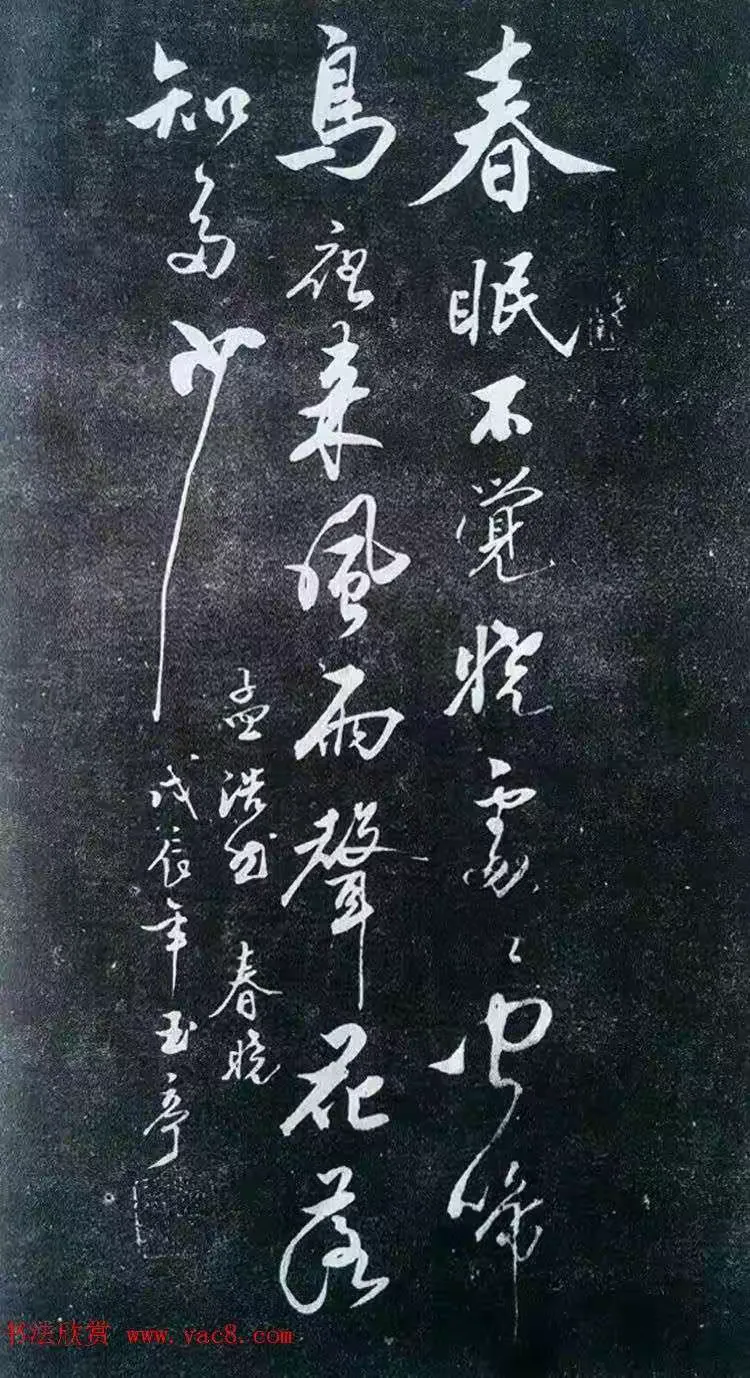 春眠不覺曉處〻聞啼
鳥夜来風雨聲花落
知多少
孟浩然 春曉
戊辰年玉亭
书法欣赏 www.yac8.com